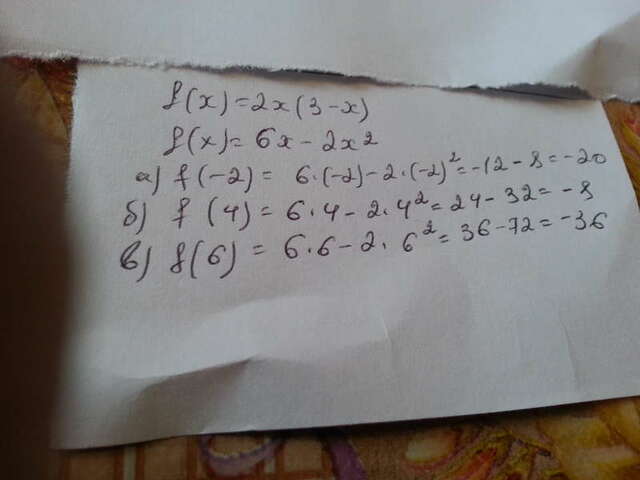 f(x)=2x(3-x)
f(x)=6x-2x²
а) f(-2)= 6·(-2)-2·(-2)²=-12-8=-20
б) f(4)=6·4-2·4²=24-32=-8
в) f(6)=6·6-2·6²=36-72=-36